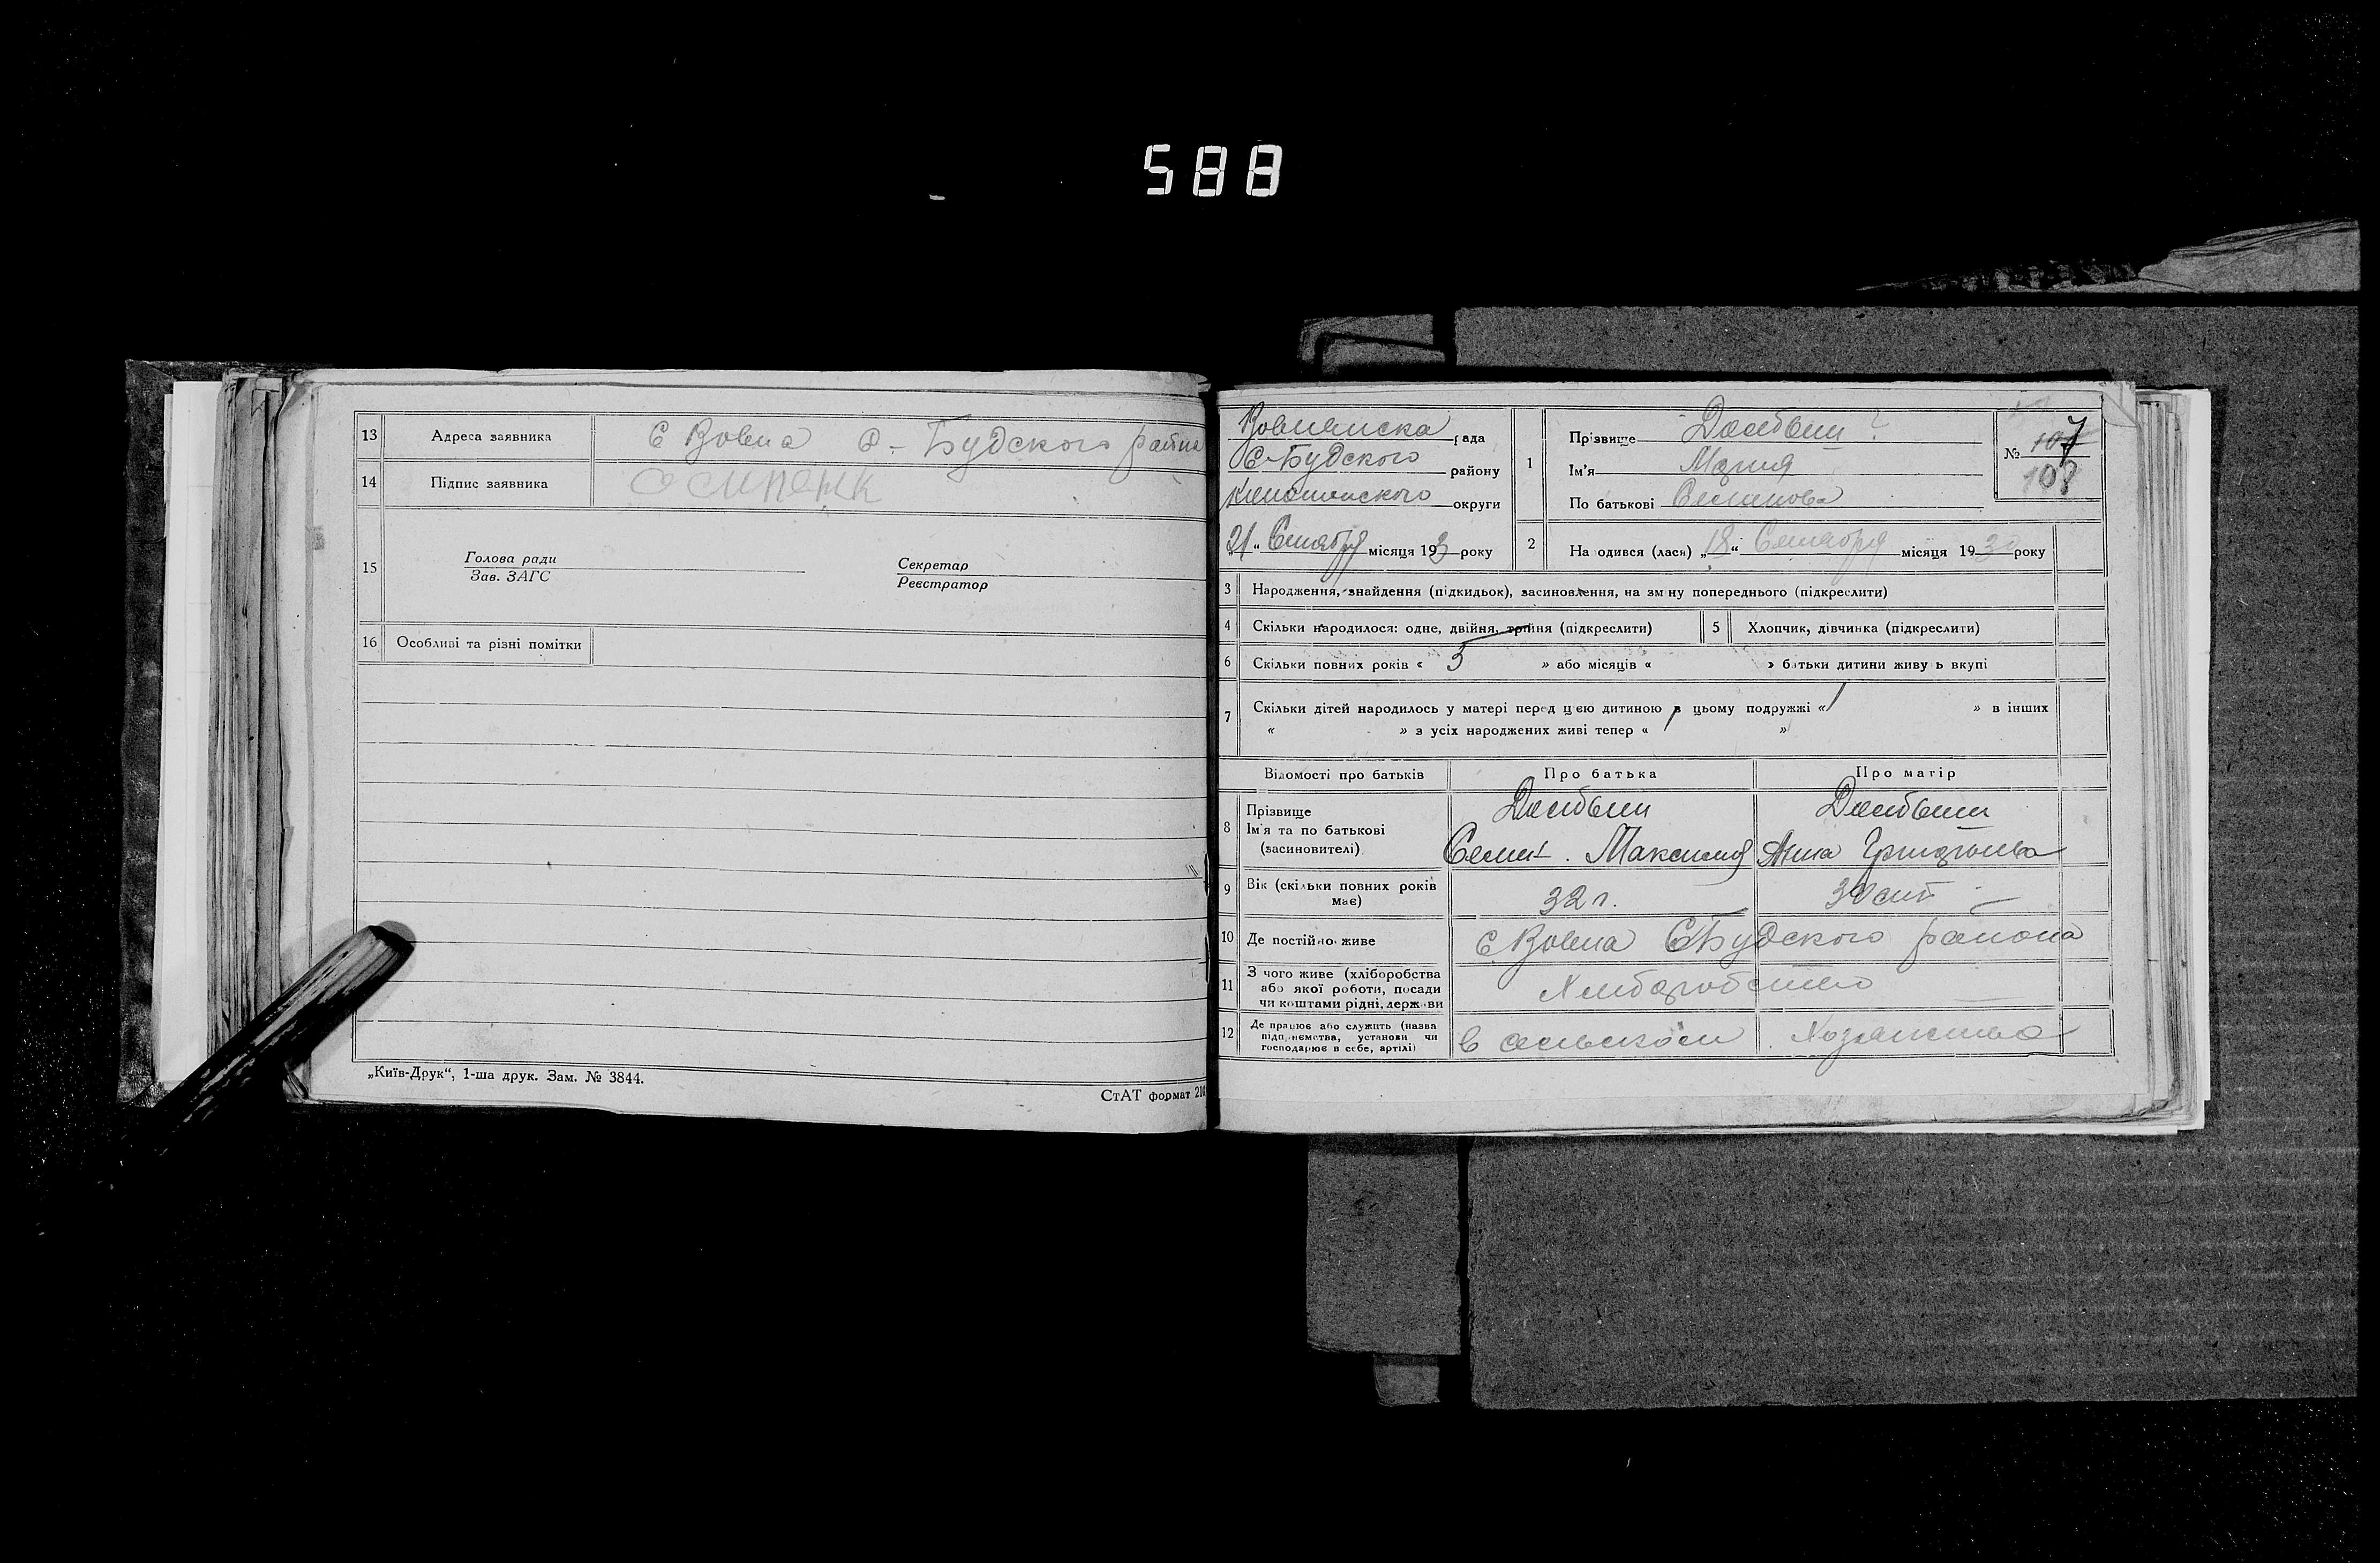 588
13 Адреса заявника С Вовна С.-Будского района
14 Підпис заявника Осипенк
15 Голова ради
Зав. ЗАГС
Секретар
Реєстратор
16 Особливі та різні помітки
„Київ-Друк“, 1-ша друк. Зам. № 3844.
СтАТ формат 210
рада
С-Будского району
округи
21 “ Сентября місяця 193 року
1 Прізвище
Ім'я Мария
По батькові Семенова
№ 107
108
2 На одився (лася) „18“ Сентября місяця 1930 року
3 Народження, знайдення (підкидьок), засиновлення, на зм ну попереднього (підкреслити)
4 Скільки народилося: одне, двійня, трійня (підкреслити) 5 Хлопчик, дівчинка (підкреслити)
6 Скільки повних років « 5 » або місяців « » батьки дитини живу ь вкупі
7 Скільки дітей народилось у матері перед цею дитиною в цьому подружжі « 1 » в інших
« » з усіх народжених живі тепер « 1 »
Відомості про батьків Про батька Про матір
8 Прізвище
Ім'я та по батькові Семен. Максимов Анна Григорьева
(засиновителі)
9 Вік (скільки повних років має) 32 г. 30 лит
10 Де постійно живе С. Вовна СБудского района
11 З чого живе (хліборобства
або якої роботи, посади
чи коштами рідні, держави Хлиборобство
12 Де працює або служить (назва
підприємства, установи чи
господарює в себе, артілі) в сельском Хозяйства